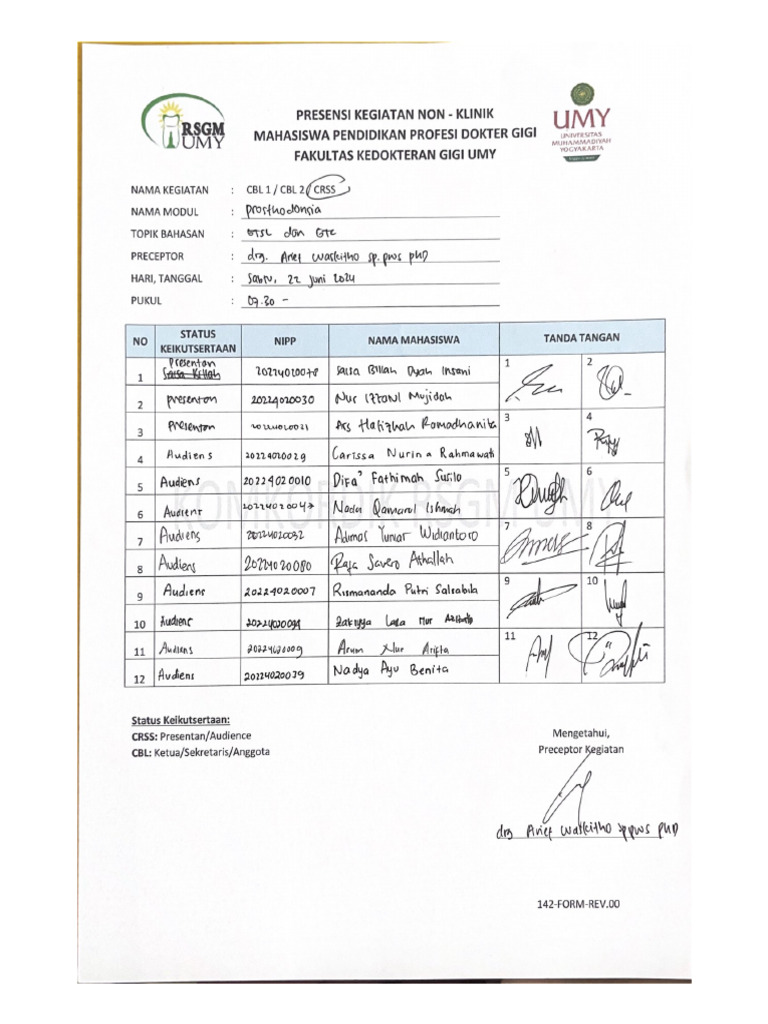 RSGM
UMY
PRESENSI KEGIATAN NON - KLINIK
MAHASISWA PENDIDIKAN PROFESI DOKTER GIGI
FAKULTAS KEDOKTERAN GIGI UMY
UMY
UNIVERSITAS
MUHAMMADIYAH
YOGYAKARTA
NAMA KEGIATAN : CBL 1 / CBL 2 / CRSS
NAMA MODUL : Prosthodonsia
TOPIK BAHASAN : GTSL dan GTC
PRECEPTOR : drg. Arief Waskitho sp.pros phD
HARI, TANGGAL : Sabtu, 22 Juni 2024
PUKUL : 07.30 -
NO STATUS KEIKUTSERTAAN NIPP NAMA MAHASISWA TANDA TANGAN
1 Presentan 20224020078 Salsa Billah Dyah Insani 1 2
2 presentan 20224020030 Nur Izzatul Mujidah
3 Presentan Ars Hafizhah Ramadhanita 3 4
4 Audiens 20224020029 Carissa Nurina Rahmawati
5 Audiens 20224020010 Difa' Fathimah Susilo 5 6
6 Audiens 20224020047 Nada Qamarul Ishmah
7 Audiens 20224020032 Adimas Yuniar Widiantoro 7 8
8 Audiens 20224020080 Raja Savero Athallah
9 Audiens 20224020007 Rismananda Putri Salsabila 9 10
10 Audiens Zakiyya Lala Nur
11 Audiens 20224020009 Arum Nur Arifta 11 12
12 Audiens 20224020039 Nadya Ayu Benita
KOMKORDIK RSGM UMY
Status Keikutsertaan:
CRSS: Presentan/Audience
CBL: Ketua/Sekretaris/Anggota
Mengetahui,
Preceptor Kegiatan
drg Arief Waskitho sppros phD
142-FORM-REV.00